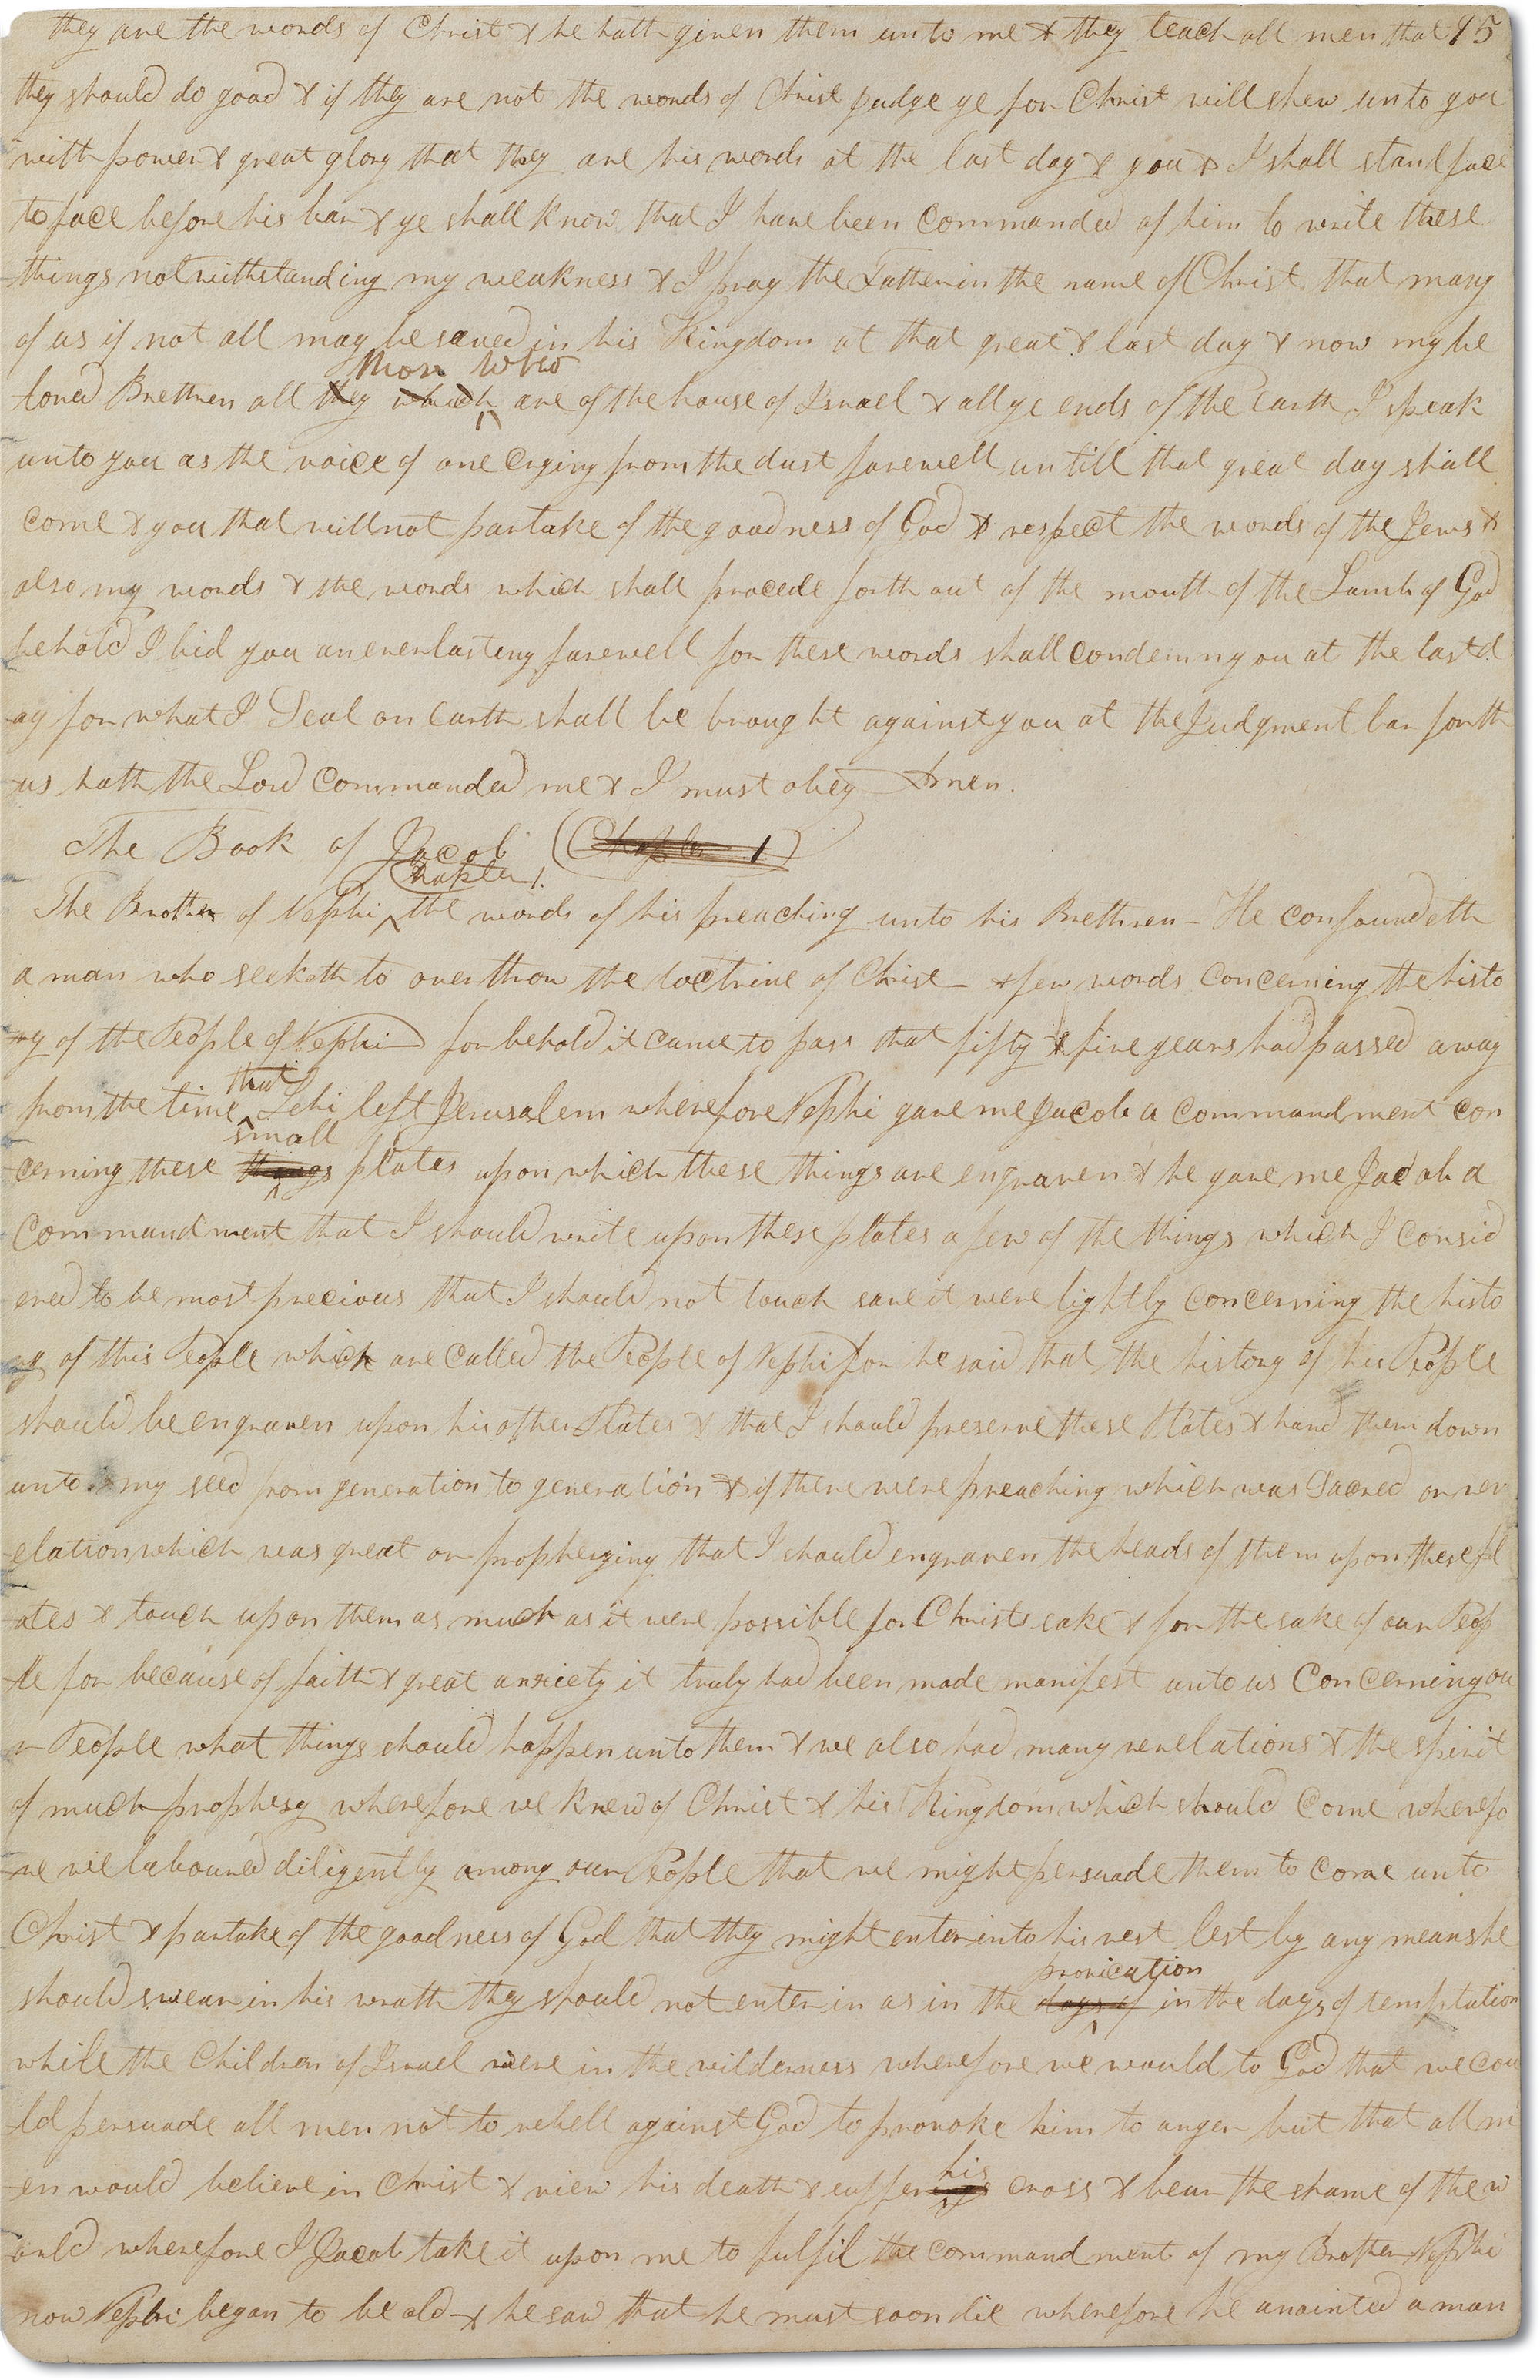 they are the words of Christ & he hath given them unto me & they teach all men that 95
they should do good & if they are not the words of Christ judge ye for Christ will shew unto you
with power & great glory that they are his words at the last day & you & I shall stand face
to face before his bar & ye shall know that I have been commanded of him to write these
things notwithstanding my weakness & I pray the Father in the name of Christ that many
of us if not all may be saved in his Kingdom at that great & last day & now my be
those who
loved Brethren all they which are of the house of Israel & all ye ends of the Earth I speak
unto you as the voice of one Crying from the dust farewell untill that great day shall
come & you that will not partake of the goodness of God & respect the words of the Jews &
also my words & the words which shall procede forth out of the mouth of the Lamb of God
behold I bid you an everlasting farewell for these words shall condemn you at the last d
-ay for what I Seal on Earth shall be brought against you at the Judgment bar for th
-us hath the Lord commanded me & I must obey Amen.
The Book of Jacob (Chapter 1)
Chapter 1.
The Brother of Nephi the words of his preaching unto his Brethren - He confoundeth
a man who seeketh to overthrow the doctrine of Christ - a few words concerning the histo
-ry of the People of Nephi for behold it came to pass that fifty & five years had passed away
that
from the time Lehi left Jerusalem wherefore Nephi gave me Jacob a commandment con
small
cerning these things plates upon which these things are engraven & he gave me Jacob a
commandment that I should write upon these plates a few of the things which I consid
ered to be most precious that I should not touch save it were lightly concerning the histo
-ry of this People which are called the People of Nephi for he said that the history of his People
should be engraven upon his other Plates & that I should preserve these Plates & hand them down
unto my seed from generation to generation & if there were preaching which was Sacred or rev
-elation which was great or prophesying that I should engraven the heads of them upon these pl
-ates & touch upon them as much as it were possible for Christs sake & for the sake of our Peop
-le for because of faith & great anxiety it truly had been made manifest unto us concerning ou
-r People what things should happen unto them & we also had many revelations & the spirit
of much prophesy wherefore we knew of Christ & his Kingdom which should come wherefo
-re we laboured diligently among our People that we might persuade them to come unto
Christ & partake of the goodness of God that they might enter into his rest lest by any means he
provication
should swear in his wrath they should not enter in as in the days of in the days of temptation
while the Children of Israel were in the wilderness wherefore we would to God that we cou
-ld persuade all men not to rebell against God to provoke him to anger but that all m
his
-en would believe in Christ & view his death & sufferings cross & bear the shame of the w
-orld wherefore I Jacob take it upon me to fulfil the commandment of my Brother Nephi
now Nephi began to be old & he saw that he must soon die wherefore he anointed a man